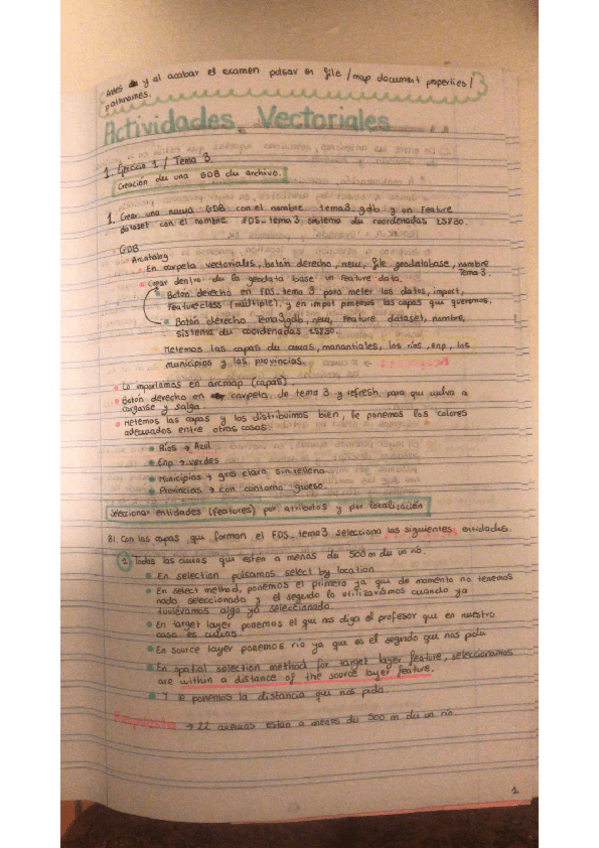 Antes de y al acabar el examen pulsar en file / map document properties /
pathnames.
Actividades Vectoriales
1. Ejercicio 1 / Tema 3.
Creación de una GDB de archivo.
1. Crear una nueva GDB con el nombre tema3.gdb y un feature
dataset con el nombre FDS_tema3 sistema de coordenadas 25830.
GDB
Arcatalog
En carpeta vectoriales, botón derecho, new, file geodatabase, nombre
Tema 3.
Crear dentro de la geodata base un feature data.
Botón derecho en FDS_tema 3 para meter los datos, import,
Featureclass (múltiple), y en imput ponemos las capas que queremos.
Botón derecho tema3gdb, new, feature dataset, nombre,
sistema de coordenadas 25830.
Metemos las capas de cuevas, manantiales, los ríos, enp, los
municipios y las provincias.
Lo importamos en arcmap (capas).
Botón derecho en carpeta de tema 3 y refresh para que vuelva a
cargarse y salga.
Metemos las capas y los distribuimos bien, le ponemos los colores
adecuados entre otras cosas.
Ríos → Azul
Enp → verdes
Municipios → gris claro, sin relleno
Provincias → con contorno grueso.
Seleccionar entidades (features) por atributos y por localización
B1. Con las capas que forman el FDS_tema3 selecciona las siguientes entidades.
1 Todas las cuevas que estén a menos de 500 m de un río.
En selection pulsamos select by location
En select method, ponemos el primero ya que de momento no tenemos
nada seleccionado y el segundo lo utilizaríamos cuando ya
tuviéramos algo ya seleccionado.
En target layer ponemos el que nos diga el profesor que en nuestro
caso es cuevas.
En source layer ponemos río ya que es el segundo que nos pide
En spatial selection method for target layer feature, seleccionamos
are within a distance of the source layer feature.
Y le ponemos la distancia que nos pida.
Respuesta → 22 cuevas están a menos de 500 m de un río.
1